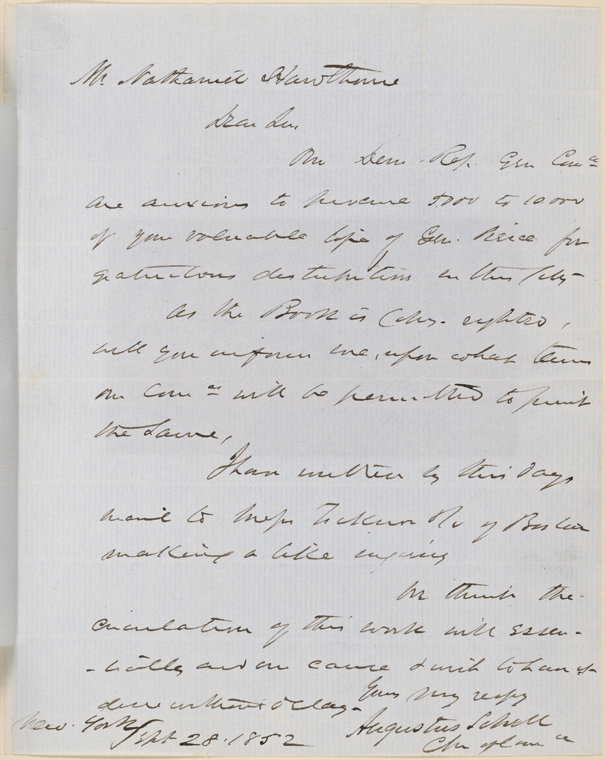 Mr Nathaniel Hawthorne
Dear Sir,
Our Dem. Rep. Gen Comee
are anxious to procure 5000 to 10000
of your valuable life of Gen. Peirce for
gratuitous distribution in this City
As the Book is Copy-righted,
will you inform me, upon what terms
our Comee will be permitted to print
the Same,
I have written by this days
mail to Messrs Ticknor &c of Boston
making a like inquiry
We think the
circulation of this work will essen-
-tially aid our cause & wish to have it
done without delay-
Yours very respy
Augustus Schell
Chn of Com ee
New-York Sept 28. 1852